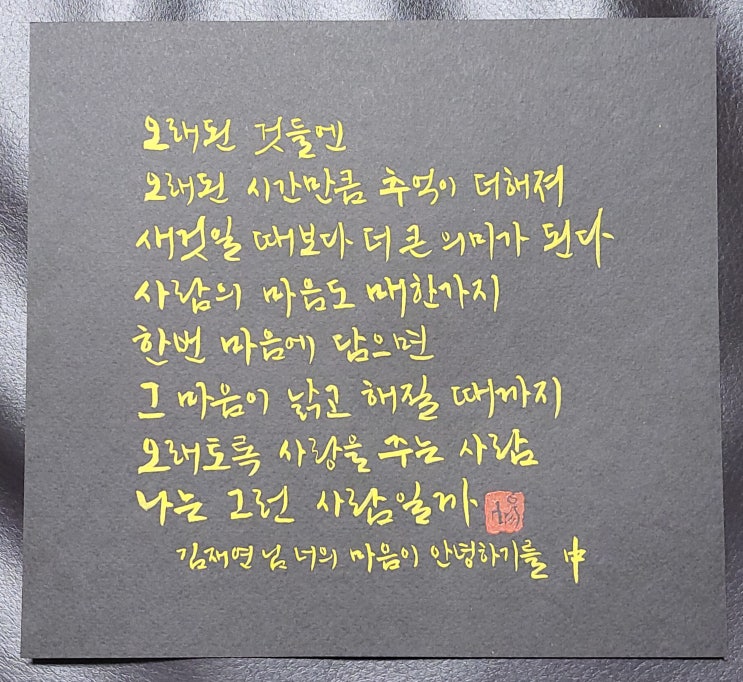 오래된 것들엔
오래된 시간만큼 추억이 더해져
새것일 때보다 더 큰 의미가 된다
사람의 마음도 매한가지
한번 마음에 담으면
그 마음이 낡고 해질 때까지
오래토록 사랑을 주는 사람
나는 그런 사람일까
김재연님 너의 마음이 안녕하기를 中